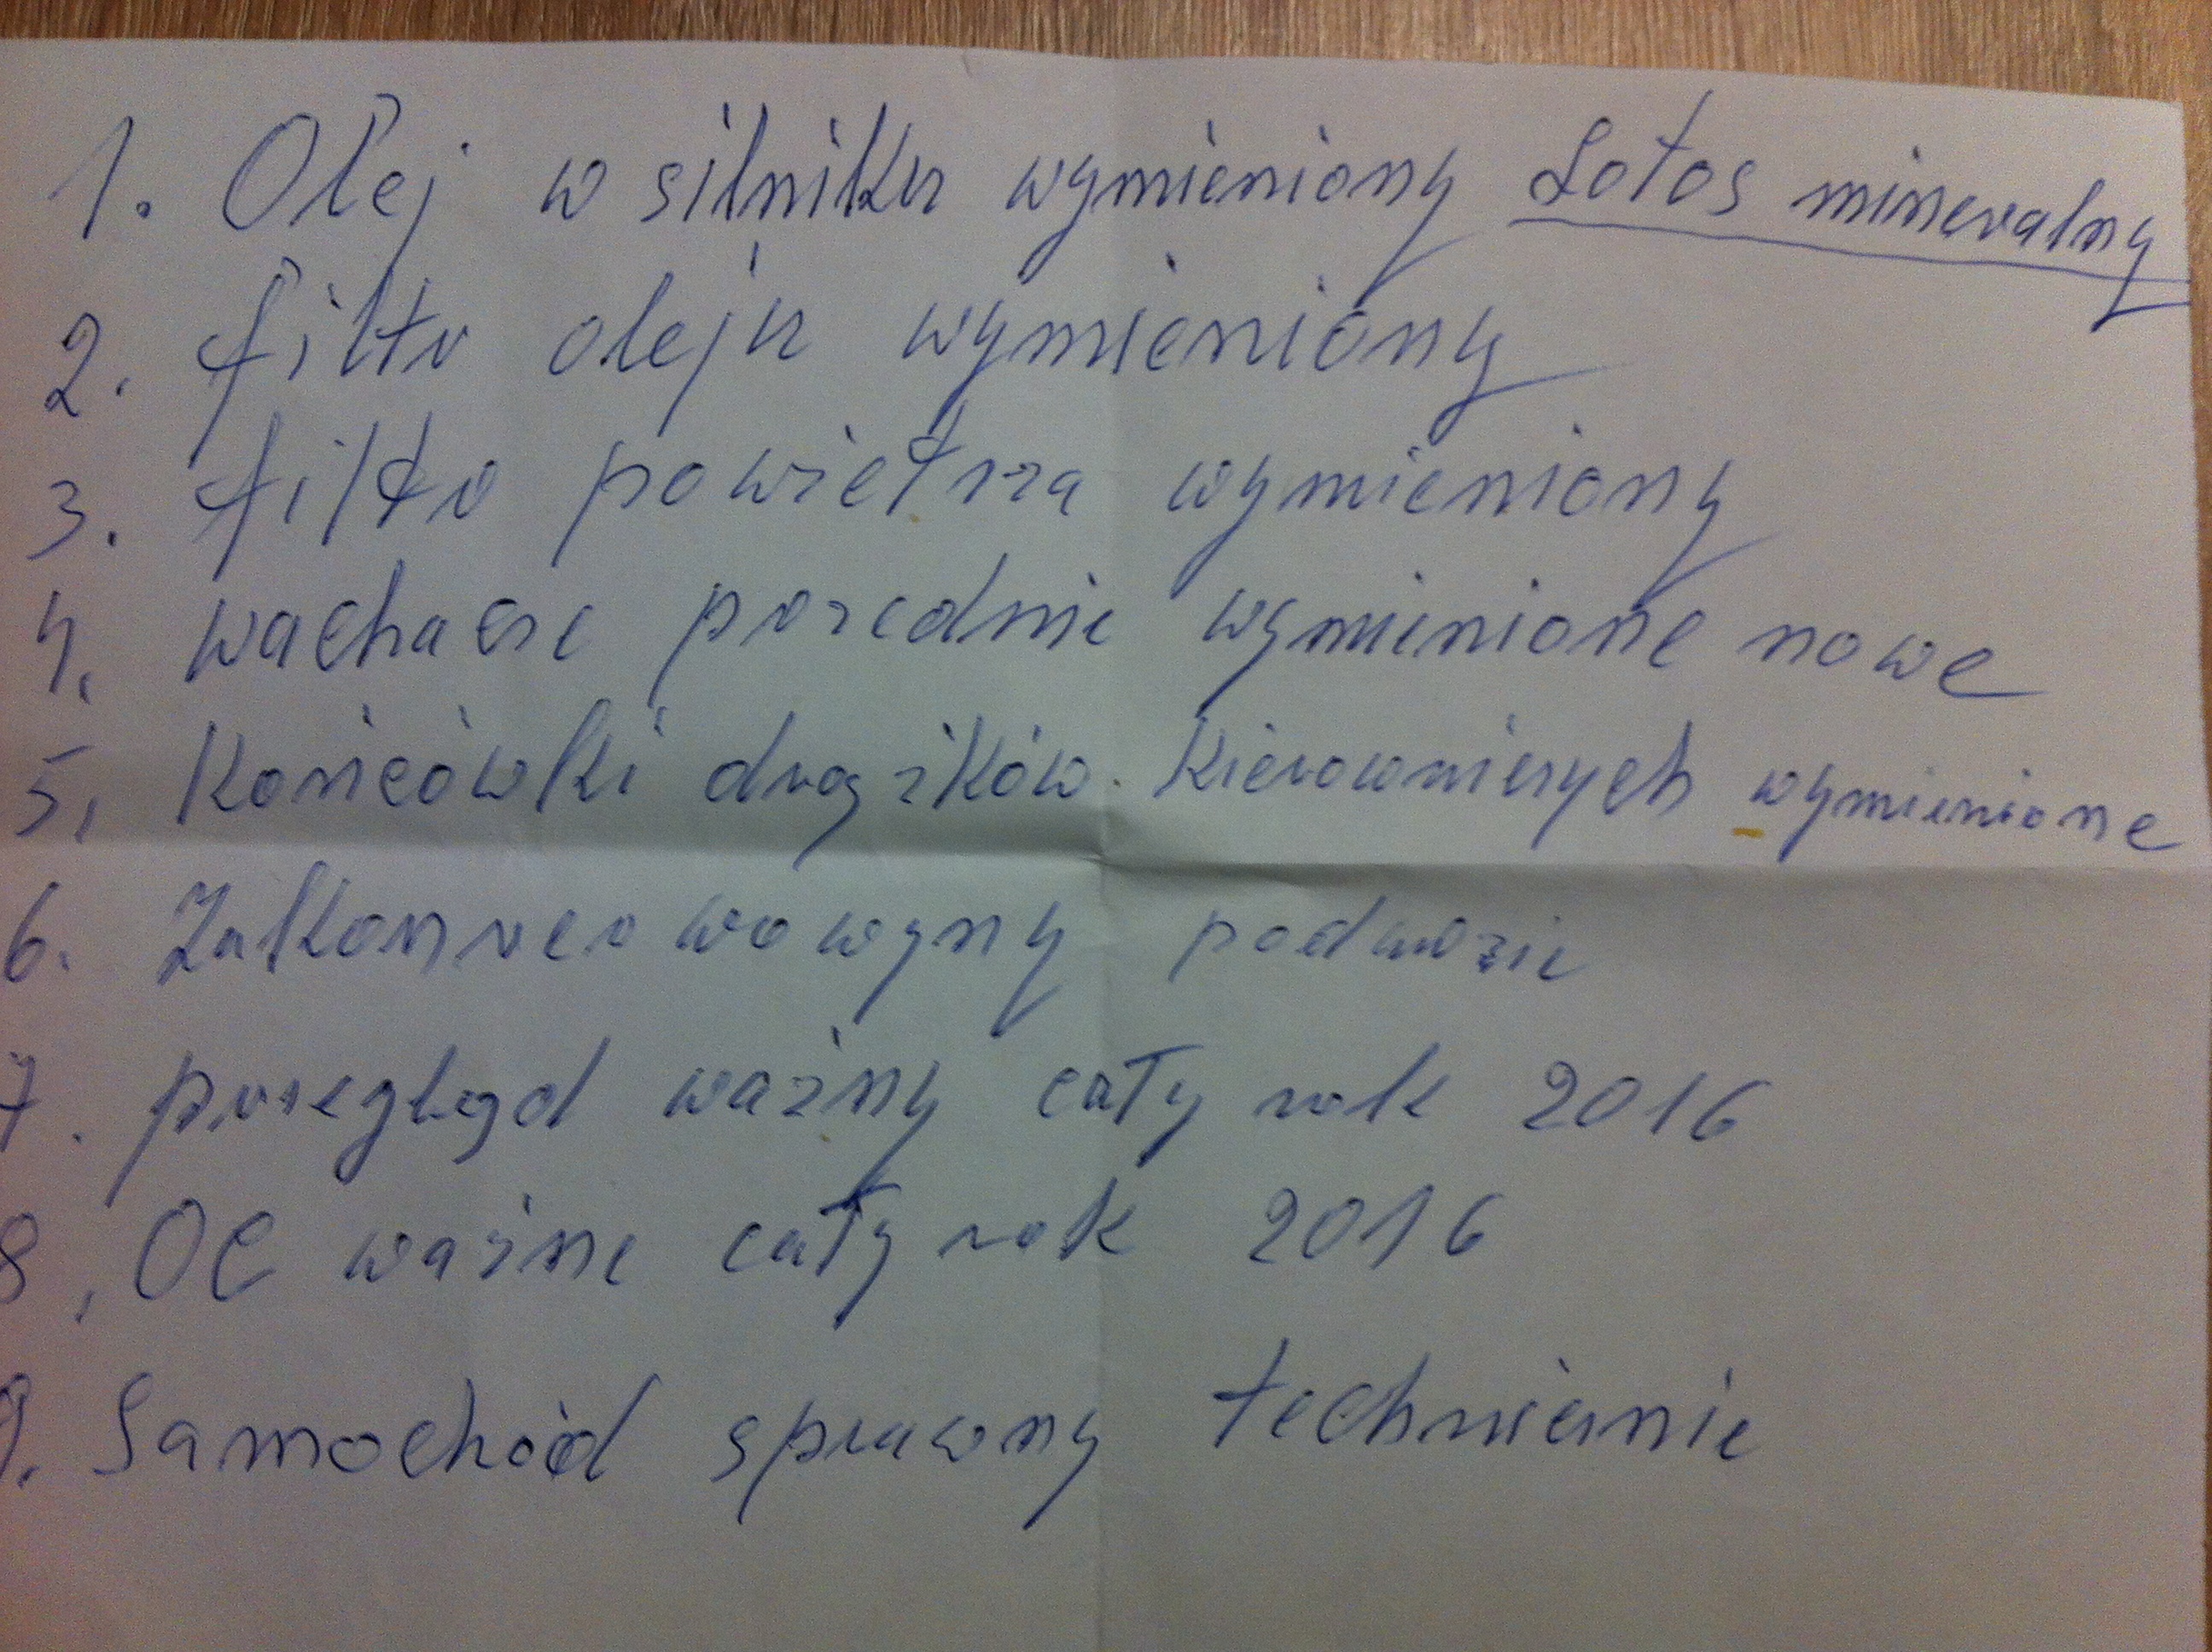 1. Olej w silniku wymieniony Lotos mineralny
2. filtr oleju wymieniony
3. filtr powietrza wymieniony
4. wachacze przednie wymienione nowe
5. Końcówki drążków kierowniczych wymienione
6. Zakonserwowyny podwozie
7. przegląd ważny cały rok 2016
8. OC ważne cały rok 2016
9. Samochód sprawny technicznie